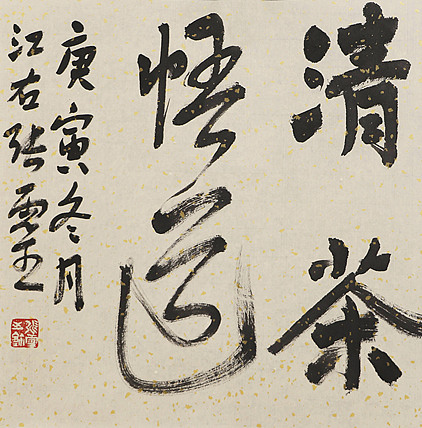 清茶
悟道
庚寅冬月
江右张